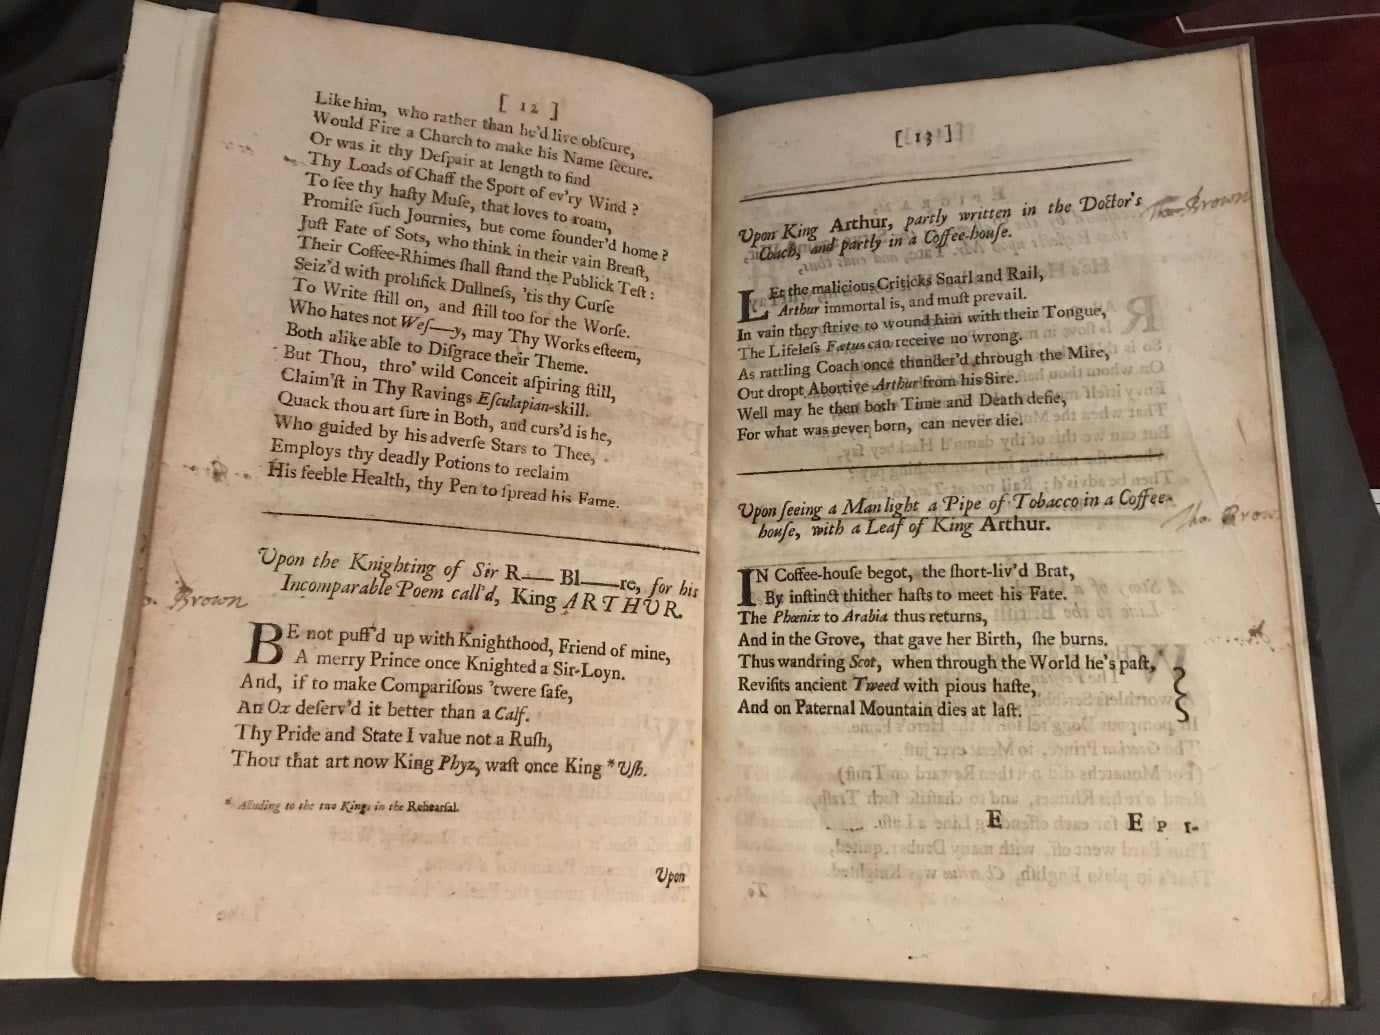 [ 12 ]
Like him, who rather than he'd live obſcure,
Would Fire a Church to make his Name ſecure.
Or was it thy Deſpair at length to find
Thy Loads of Chaff the Sport of ev'ry Wind ?
To ſee thy haſty Muſe, that loves to roam,
Promiſe ſuch Journies, but come founder'd home ?
Juſt Fate of Sots, who think in their vain Breaſt,
Their Coffee-Rhimes ſhall ſtand the Publick Teſt :
Seiz'd with prolifick Dullneſs, 'tis thy Curſe
To Write ſtill on, and ſtill too for the Worſe.
Who hates not Weſ—y, may Thy Works eſteem,
Both alike able to Diſgrace their Theme.
But Thou, thro' wild Conceit aſpiring ſtill,
Claim'ſt in Thy Ravings Eſculapian-skill.
Quack thou art ſure in Both, and curs'd is he,
Who guided by his adverſe Stars to Thee,
Employs thy deadly Potions to reclaim
His feeble Health, thy Pen to ſpread his Fame.
Upon the Knighting of Sir R— Bl—re, for his
Incomparable Poem call'd, King ARTHUR.
Brown
BE not puff'd up with Knighthood, Friend of mine,
A merry Prince once Knighted a Sir-Loyn.
And, if to make Compariſons 'twere ſafe,
An Ox deſerv'd it better than a Calf.
Thy Pride and State I value not a Ruſh,
Thou that art now King Phyz, waſt once King *Uſh.
* Alluding to the two Kings in the Rehearſal.
Upon
[ 13 ]
Upon King Arthur, partly written in the Doctor's
Coach, and partly in a Coffee-houſe.
Tho. Brown
LEt the malicious Criticks Snarl and Rail,
Arthur immortal is, and muſt prevail.
In vain they ſtrive to wound him with their Tongue,
The Lifeleſs Fætus can receive no wrong.
As rattling Coach once thunder'd through the Mire,
Out dropt Abortive Arthur from his Sire.
Well may he then both Time and Death defie,
For what was never born, can never die.
Upon ſeeing a Man light a Pipe of Tobacco in a Coffee-
houſe, with a Leaf of King Arthur.
Tho. Brown
IN Coffee-houſe begot, the ſhort-liv'd Brat,
By inſtinct thither haſts to meet his Fate.
The Phœnix to Arabia thus returns,
And in the Grove, that gave her Birth, ſhe burns.
Thus wandring Scot, when through the World he's paſt,
Reviſits ancient Tweed with pious haſte,
And on Paternal Mountain dies at laſt.
E EPI-